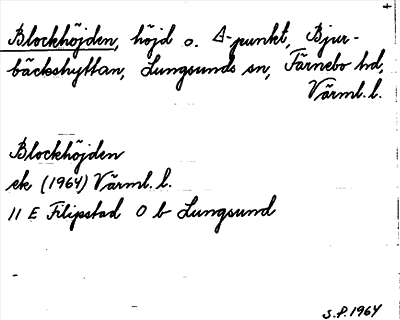 Blockhöjden, höjd o. Δ-punkt, Bjur-
bäckshyttan, Lungsunds sn, Färnebo hd,
Värml. l.
Blockhöjden
ek (1964) Värml. l.
11 E Filipstad 0 b Lungsund
S.P. 1964